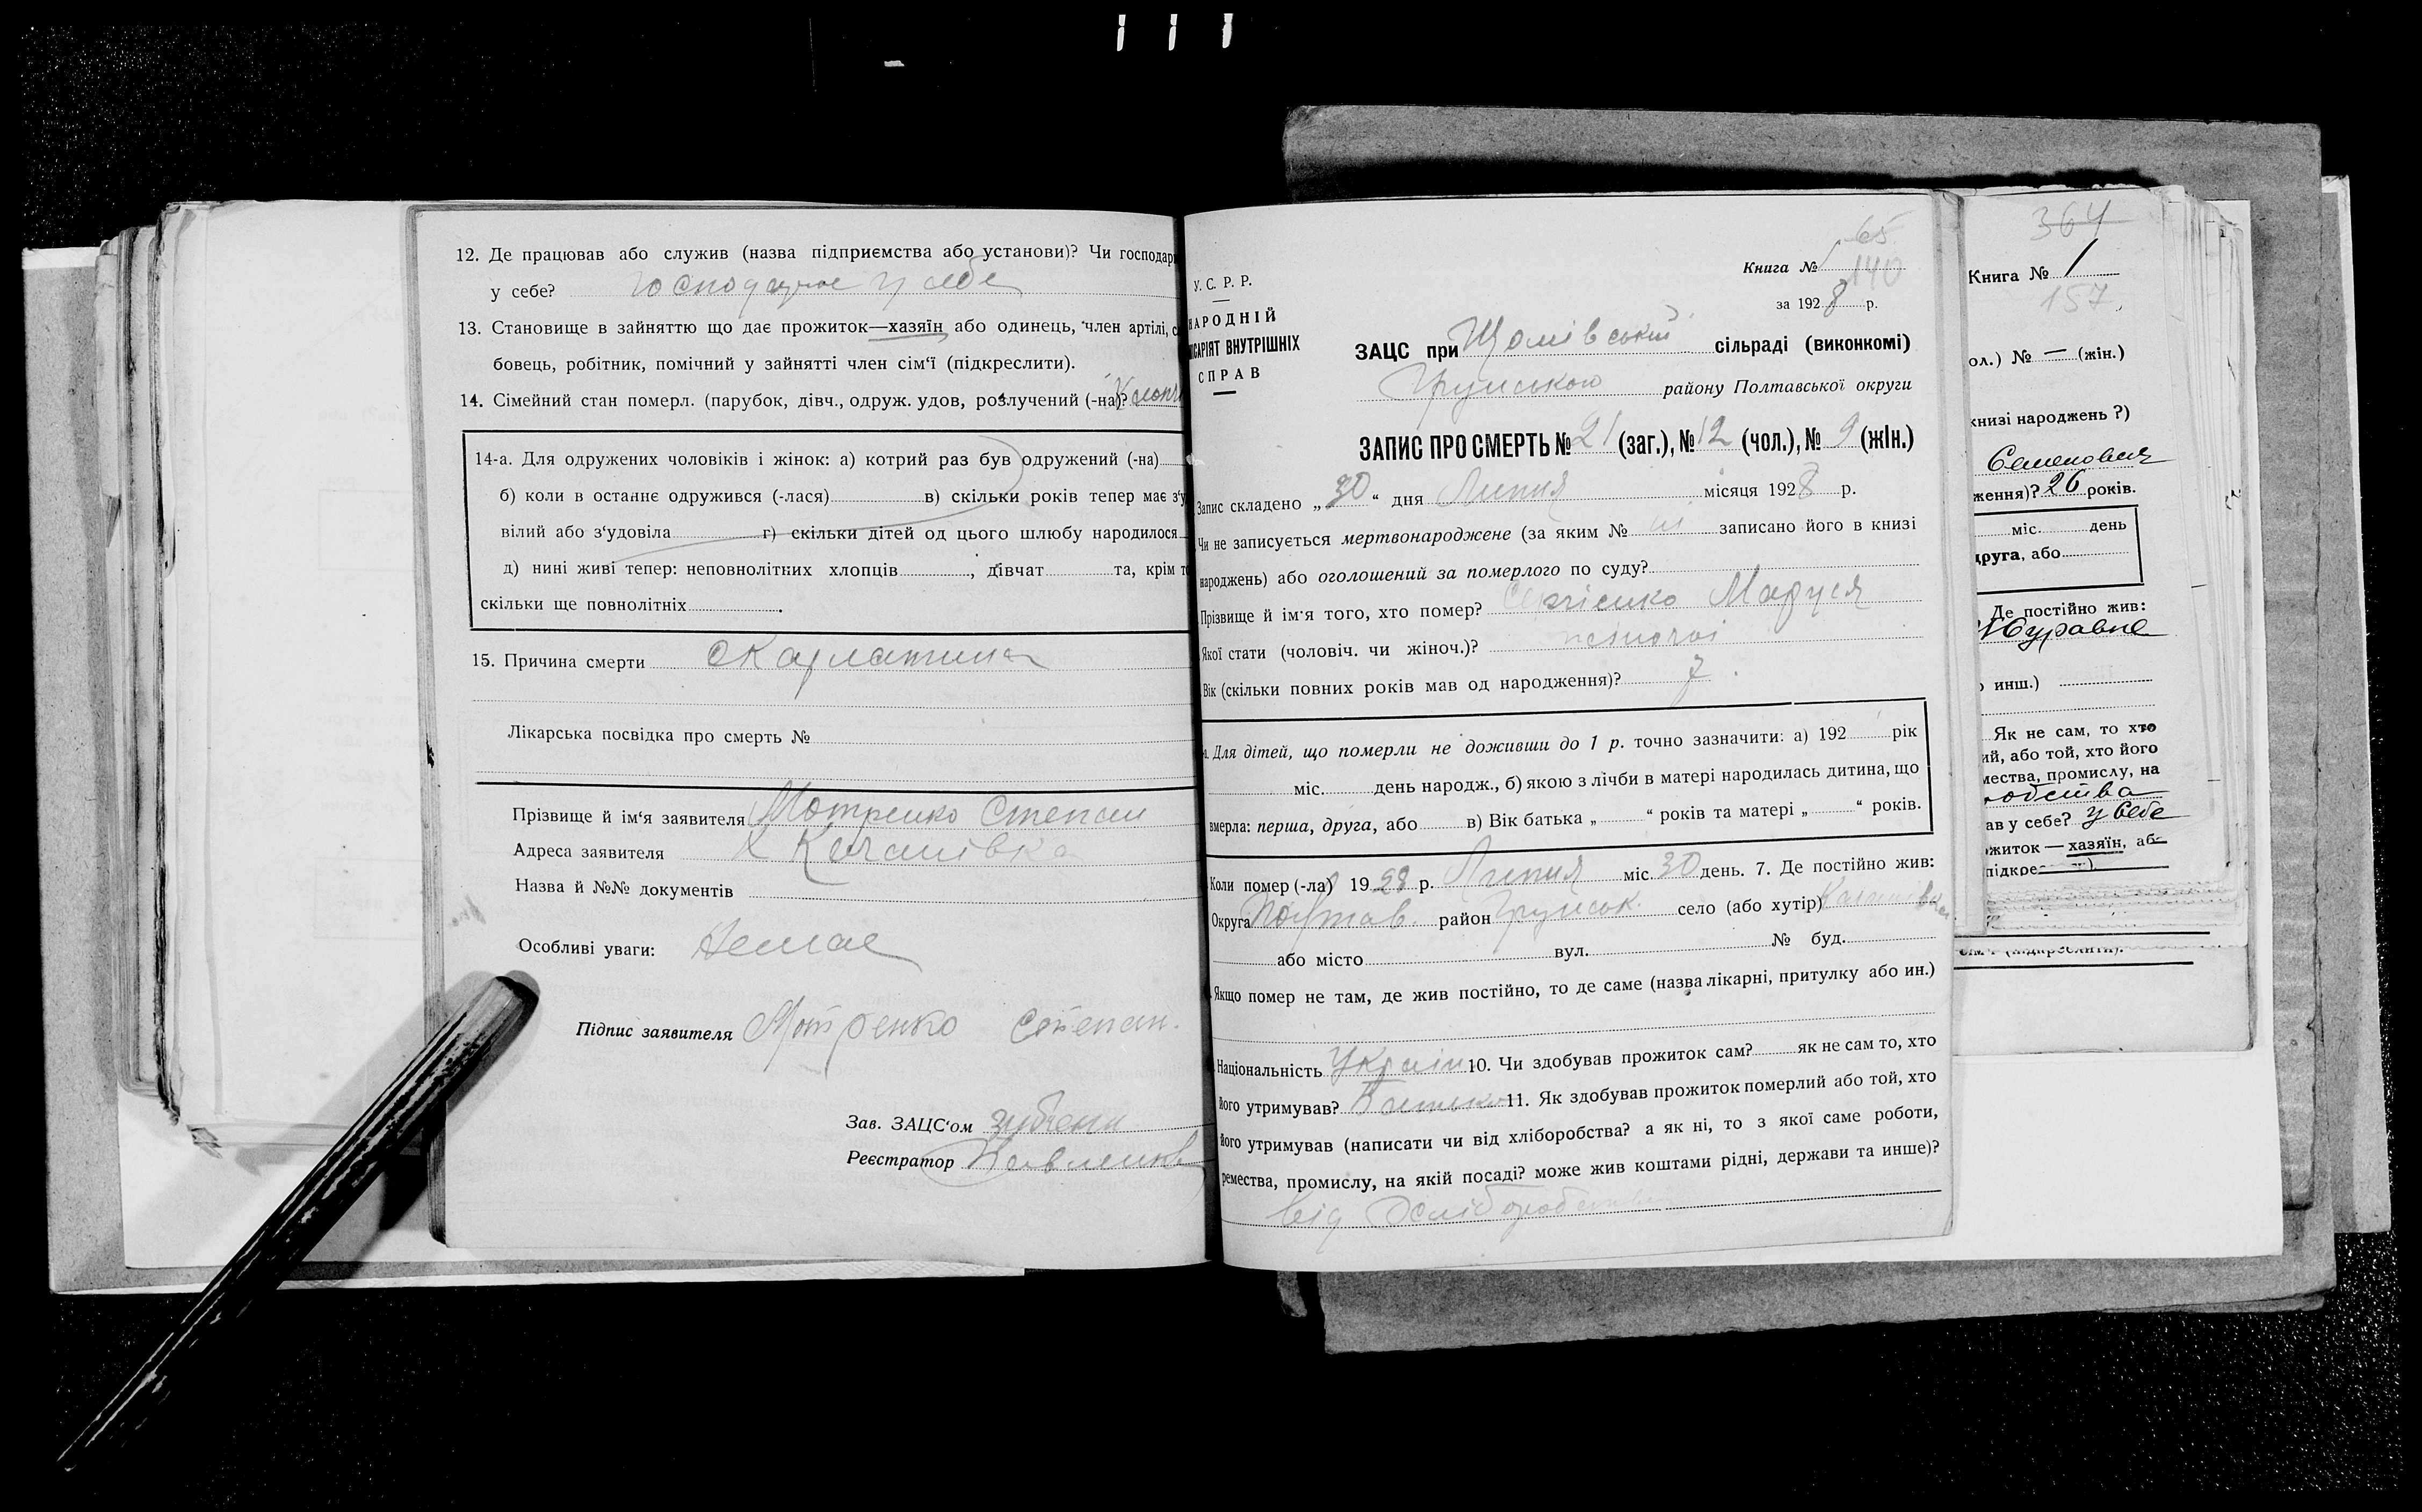 12. Де працював або служив (назва підприємства або установи)? Чи господар
у себе? господарює у себе
13. Становище в зайняттю що дає прожиток—хазяїн або одинець, член артілі, с
бовець, робітник, помічний у зайнятті член сім'ї (підкреслити).
14. Сімейний стан померл. (парубок, дівч., одруж. удов, розлучений (-на)?
14-а. Для одружених чоловіків і жінок: а) котрий раз був одружений (-на)
б) коли в останнє одружився (-лася) в) скільки років тепер має з'у
вілий або з'удовіла г) скільки дітей од цього шлюбу народилося
д) нині живі тепер: неповнолітних хлопців, дівчат та, крім т
скільки ще повнолітніх.
15. Причина смерти скарлатина
Лікарська посвідка про смерть №
Прізвище й ім'я заявителя Мотренко Степан
Адреса заявителя х Качанівка
Назва й №№ документів
Особливі уваги: Немає
Підпис заявителя Мотренко Степан.
Зав. ЗАЦС'ом
Реєстратор Павленко
65
Книга № 140
за 1928 р.
У. С. Р. Р.
НАРОДНІЙ
КОМІСАРІЯТ ВНУТРІШНІХ
СПРАВ
ЗАЦС при сільраді (виконкомі)
Грунською району Полтавської округи
ЗАПИС ПРО СМЕРТЬ № 21 (заг.), № 12 (чол.), № 9 (жін.)
Запис складено „30" дня Липня місяця 1928 р.
Чи не записується мертвонароджене (за яким № ні записано його в книзі
народжень) або оголошений за померлого по суду?
Прізвище й ім'я того, хто помер? Маруся
Якої стати (чоловіч. чи жіноч.)? жіночої
Вік (скільки повних років мав од народження)? 7
а. Для дітей, що померли не доживши до 1 р. точно зазначити: а) 192 рік
міс. день народж., б) якою з лічби в матері народилась дитина, що
вмерла: перша, друга, або в) Вік батька „ " років та матері „ " років.
Коли помер (-ла) 1928 р. Липня міс. 30 день. 7. Де постійно жив:
Округа Полтав. район Грунськ. село (або хутір) Качанівка
або місто вул. № буд.
Якщо помер не там, де жив постійно, то де саме (назва лікарні, притулку або ин.)
Національність Україн 10. Чи здобував прожиток сам? як не сам то, хто
його утримував? Батько 11. Як здобував прожиток померлий або той, хто
його утримував (написати чи від хліборобства? а як ні, то з якої саме роботи,
ремества, промислу, на якій посаді? може жив коштами рідні, держави та инше)?
від хліборобства
364
Книга № 1
157.
ол.) № — (жін.)
книзі народжень ?)
Семенович
ження)? 26 років.
міс. день
друга, або
Де постійно жив:
инш.)
Як не сам, то хто
ий, або той, хто його
мества, промислу, на
робства
ав у себе? у себе
житок — хазяїн, аб
підкре
сім'ї (підкреслити).